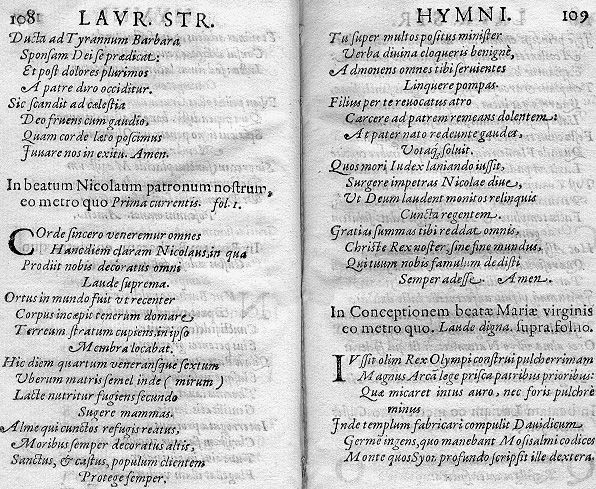 108 LAVR. STR.
Ducta ad Tyrannum Barbara
Sponsam Dei se prædicat:
Et post dolores plurimos
A patre diro occiditur.
Sic scandit ad cælestia
Deo fruens cum gaudio,
Quam corde læto poscimus
Juuare nos in exitu. Amen.
In beatum Nicolaum patronum nostrum,
eo metro quo Prima currentis. fol. 1.
COrde sincero veneremur omnes
Hanc diem claram Nicolaus, in qua
Prodiit nobis decoratus omni
Laude suprema.
Ortus in mundo fuit vt recenter
Corpus incæpit tenerum domare
Terreum stratum cupiens, in ipso
Membra locabat.
Hic diem quartum veneransque sextum
Vberum matris semel inde (mirum)
Lacte nutritur fugiens secundo
Sugere mammas.
Alme qui cunctos refugis reatus,
Moribus semper decoratus altis,
Sanctus, & castus, populum clientem
Protege semper.
HYMNI. 109
Tu super multos positus minister
Verba diuina eloqueris benignè,
Admonens omnes tibi seruientes
Linquere pompas.
Filius per te reuocatus atro
Carcere ad patrem remeans dolentem:
At pater nato redeunte gaudet,
Votaq, soluit.
Quos mori Iudex laniando iussit,
Surgere impetras Nicolae diue,
Vt Deum laudent monitos relinquis
Cuncta regentem.
Gratias summas tibi reddat omnis,
Christe Rex noster, sine fine mundus,
Qui tuum nobis famulum dedisti
Semper adesse. Amen.
In Conceptionem beatæ Mariæ virginis
eo metro quo. Laude digna. supra, fol. 10.
IVssit olim Rex Olympi construi pulcherrimam
Magnus Arcã lege prisca patribus prioribus:
Quæ micaret intus auro, nec foris pulchrè
minus
Inde templum fabricari compulit Dauidicum
Germē ingens, quo manebant Mosis almi codices
Monte quos Syon profundo scripsit ille dextera.